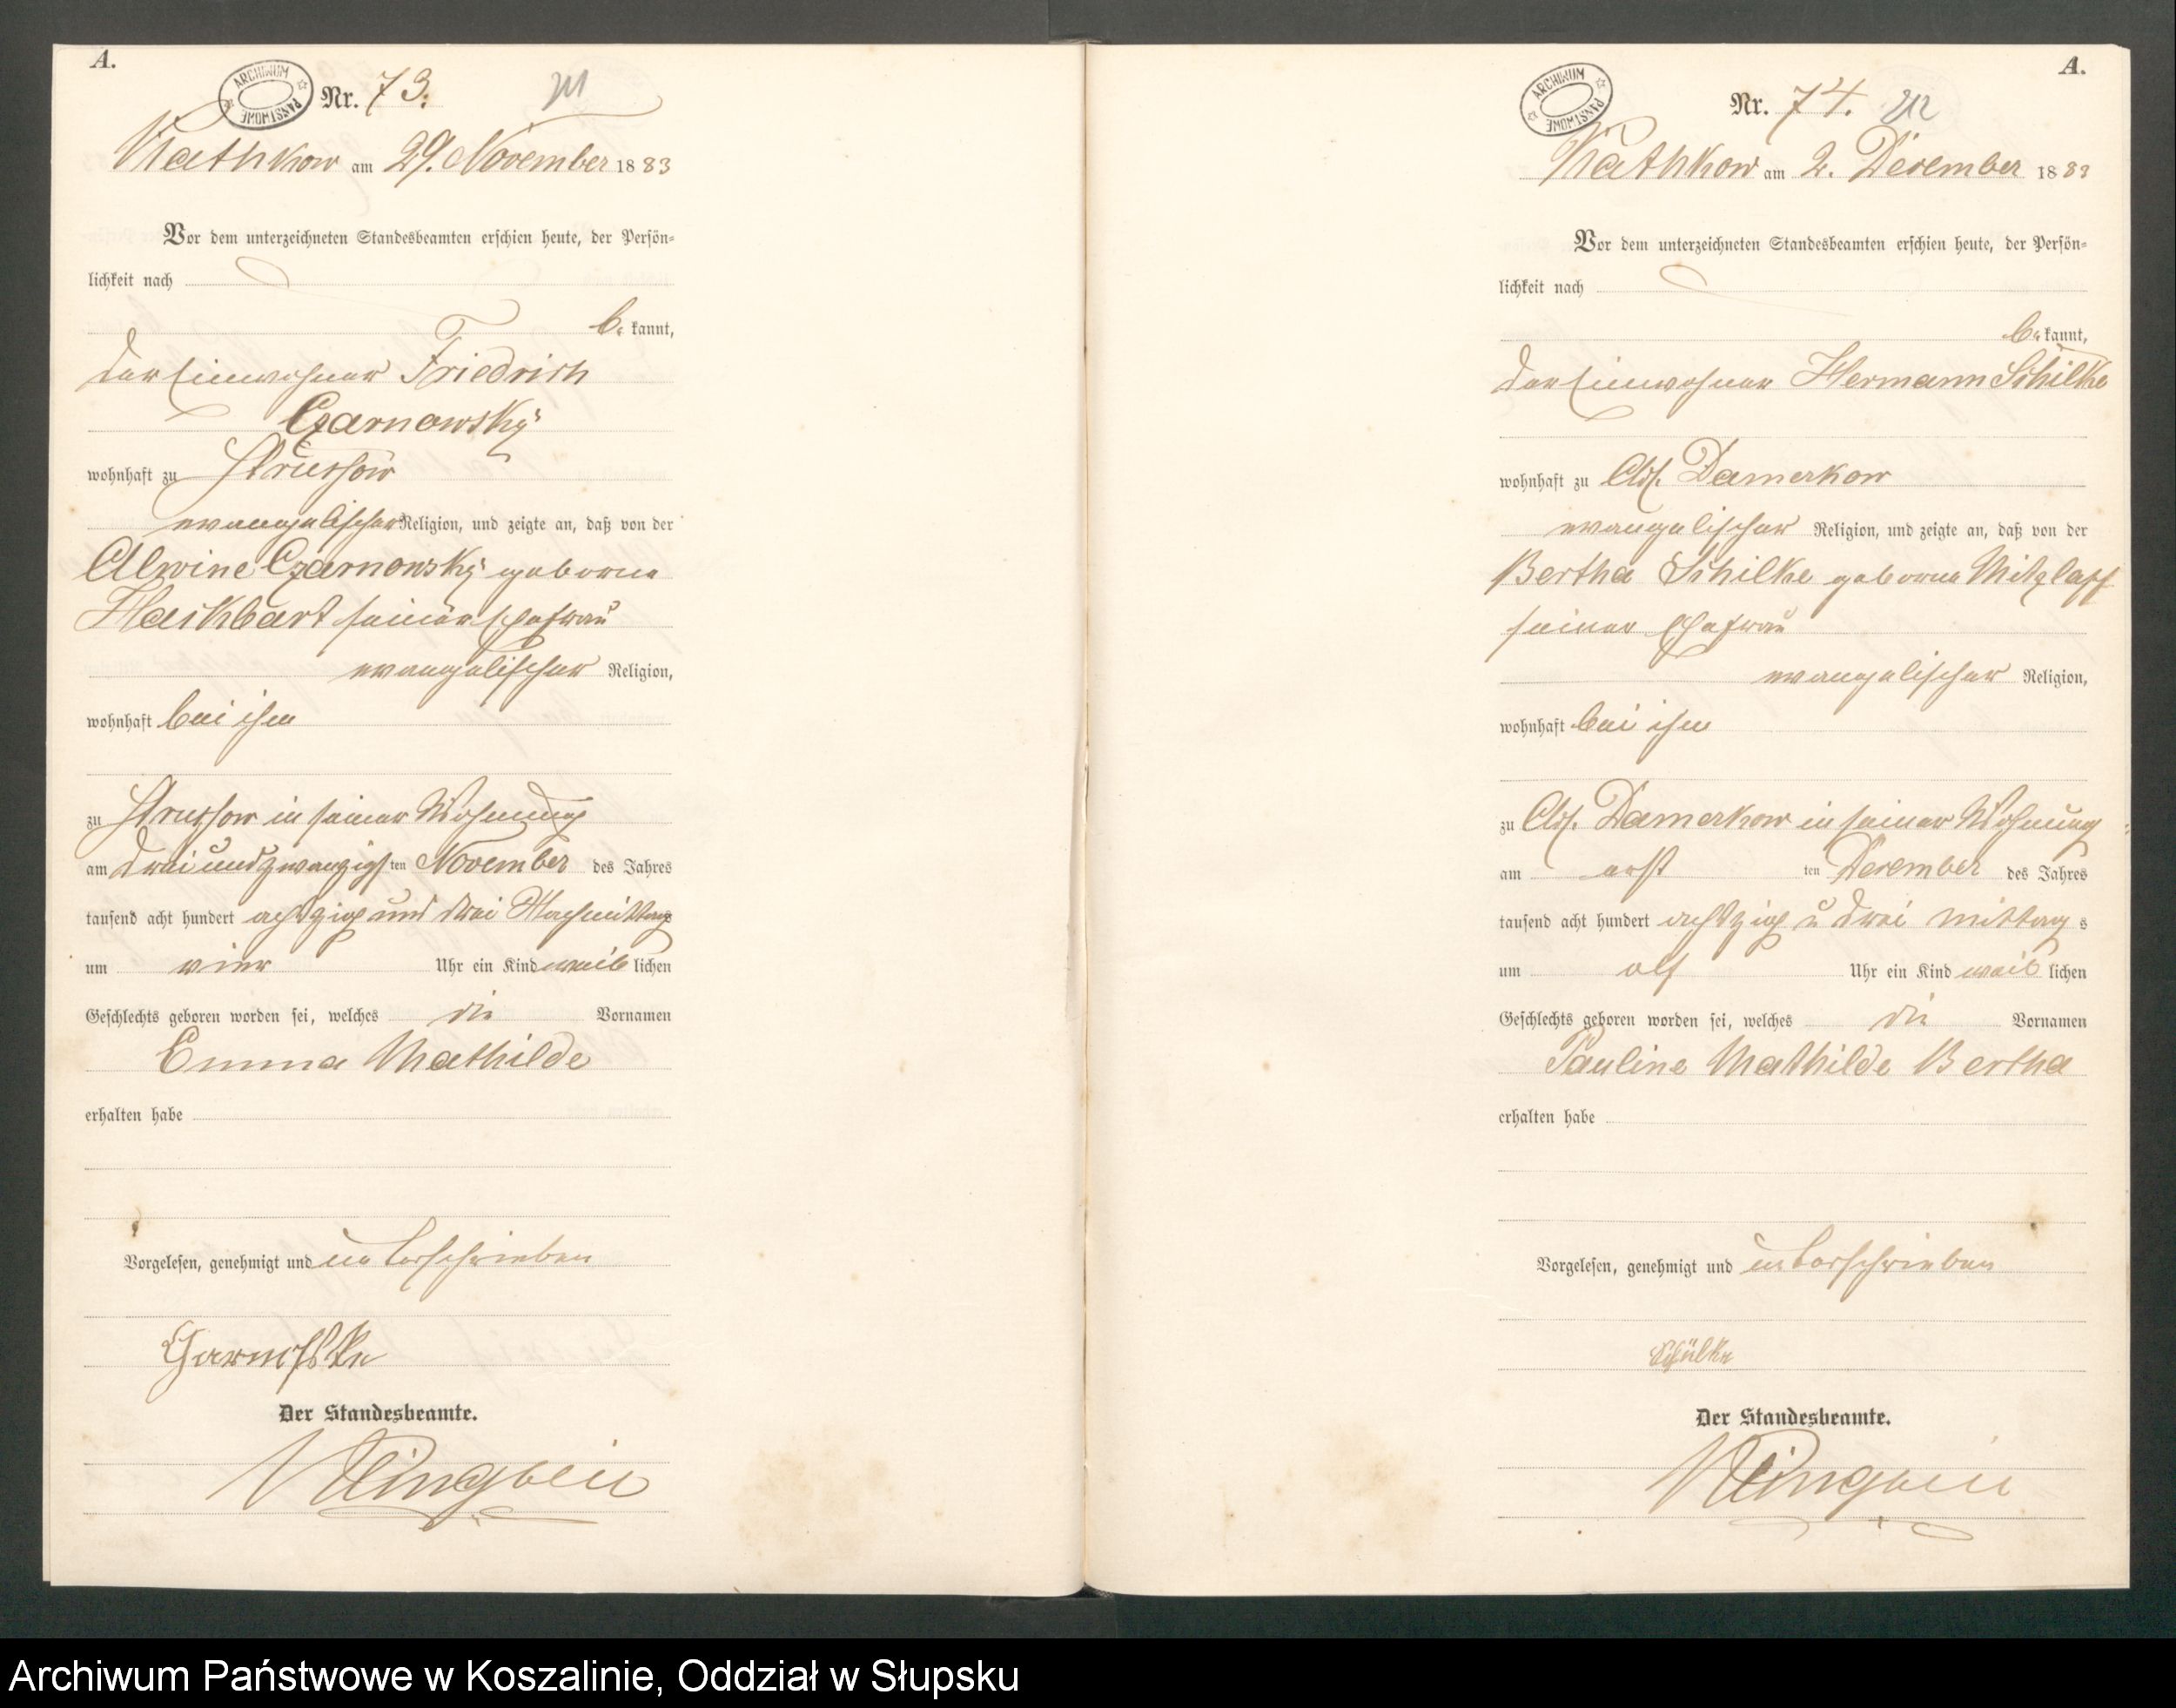 A.
ARCHIWUM PAŃSTWOWE
Nr. 73.
211
Kathkow am 29. November 1883
Vor dem unterzeichneten Standesbeamten erschien heute, der Persön-
lichkeit nach
bekannt,
der Einwohner Friedrich
Czarnowsky
wohnhaft zu Strussow
evangelischer Religion, und zeigte an, daß von der
Alwine Czarnowsky geborne
Hackbart seiner Ehefrau
evangelischer Religion,
wohnhaft bei ihm
zu Strussow in seiner Wohnung
am dreiundzwanzigsten November des Jahres
tausend acht hundert achtzig und drei Nachmittags
um vier Uhr ein Kind weiblichen
Geschlechts geboren worden sei, welches die Vornamen
Emma Mathilde
erhalten habe
Vorgelesen, genehmigt und unterschrieben
Der Standesbeamte.
Klingbeil
A.
ARCHIWUM PAŃSTWOWE
Nr. 74. 212
Kathkow am 2. December 1883
Vor dem unterzeichneten Standesbeamten erschien heute, der Persön-
lichkeit nach
bekannt,
der Einwohner Hermann Schilke
wohnhaft zu Adl. Damerkow
evangelischer Religion, und zeigte an, daß von der
Bertha Schilke geborne Mitzlaff
seiner Ehefrau
evangelischer Religion,
wohnhaft bei ihm
zu Adl. Damerkow in seiner Wohnung
am ersten December des Jahres
tausend acht hundert achtzig u drei mittags
um elf Uhr ein Kind weiblichen
Geschlechts geboren worden sei, welches die Vornamen
Pauline Mathilde Bertha
erhalten habe
Vorgelesen, genehmigt und unterschrieben
Schülke
Der Standesbeamte.
Klingbeil
Archiwum Państwowe w Koszalinie, Oddział w Słupsku